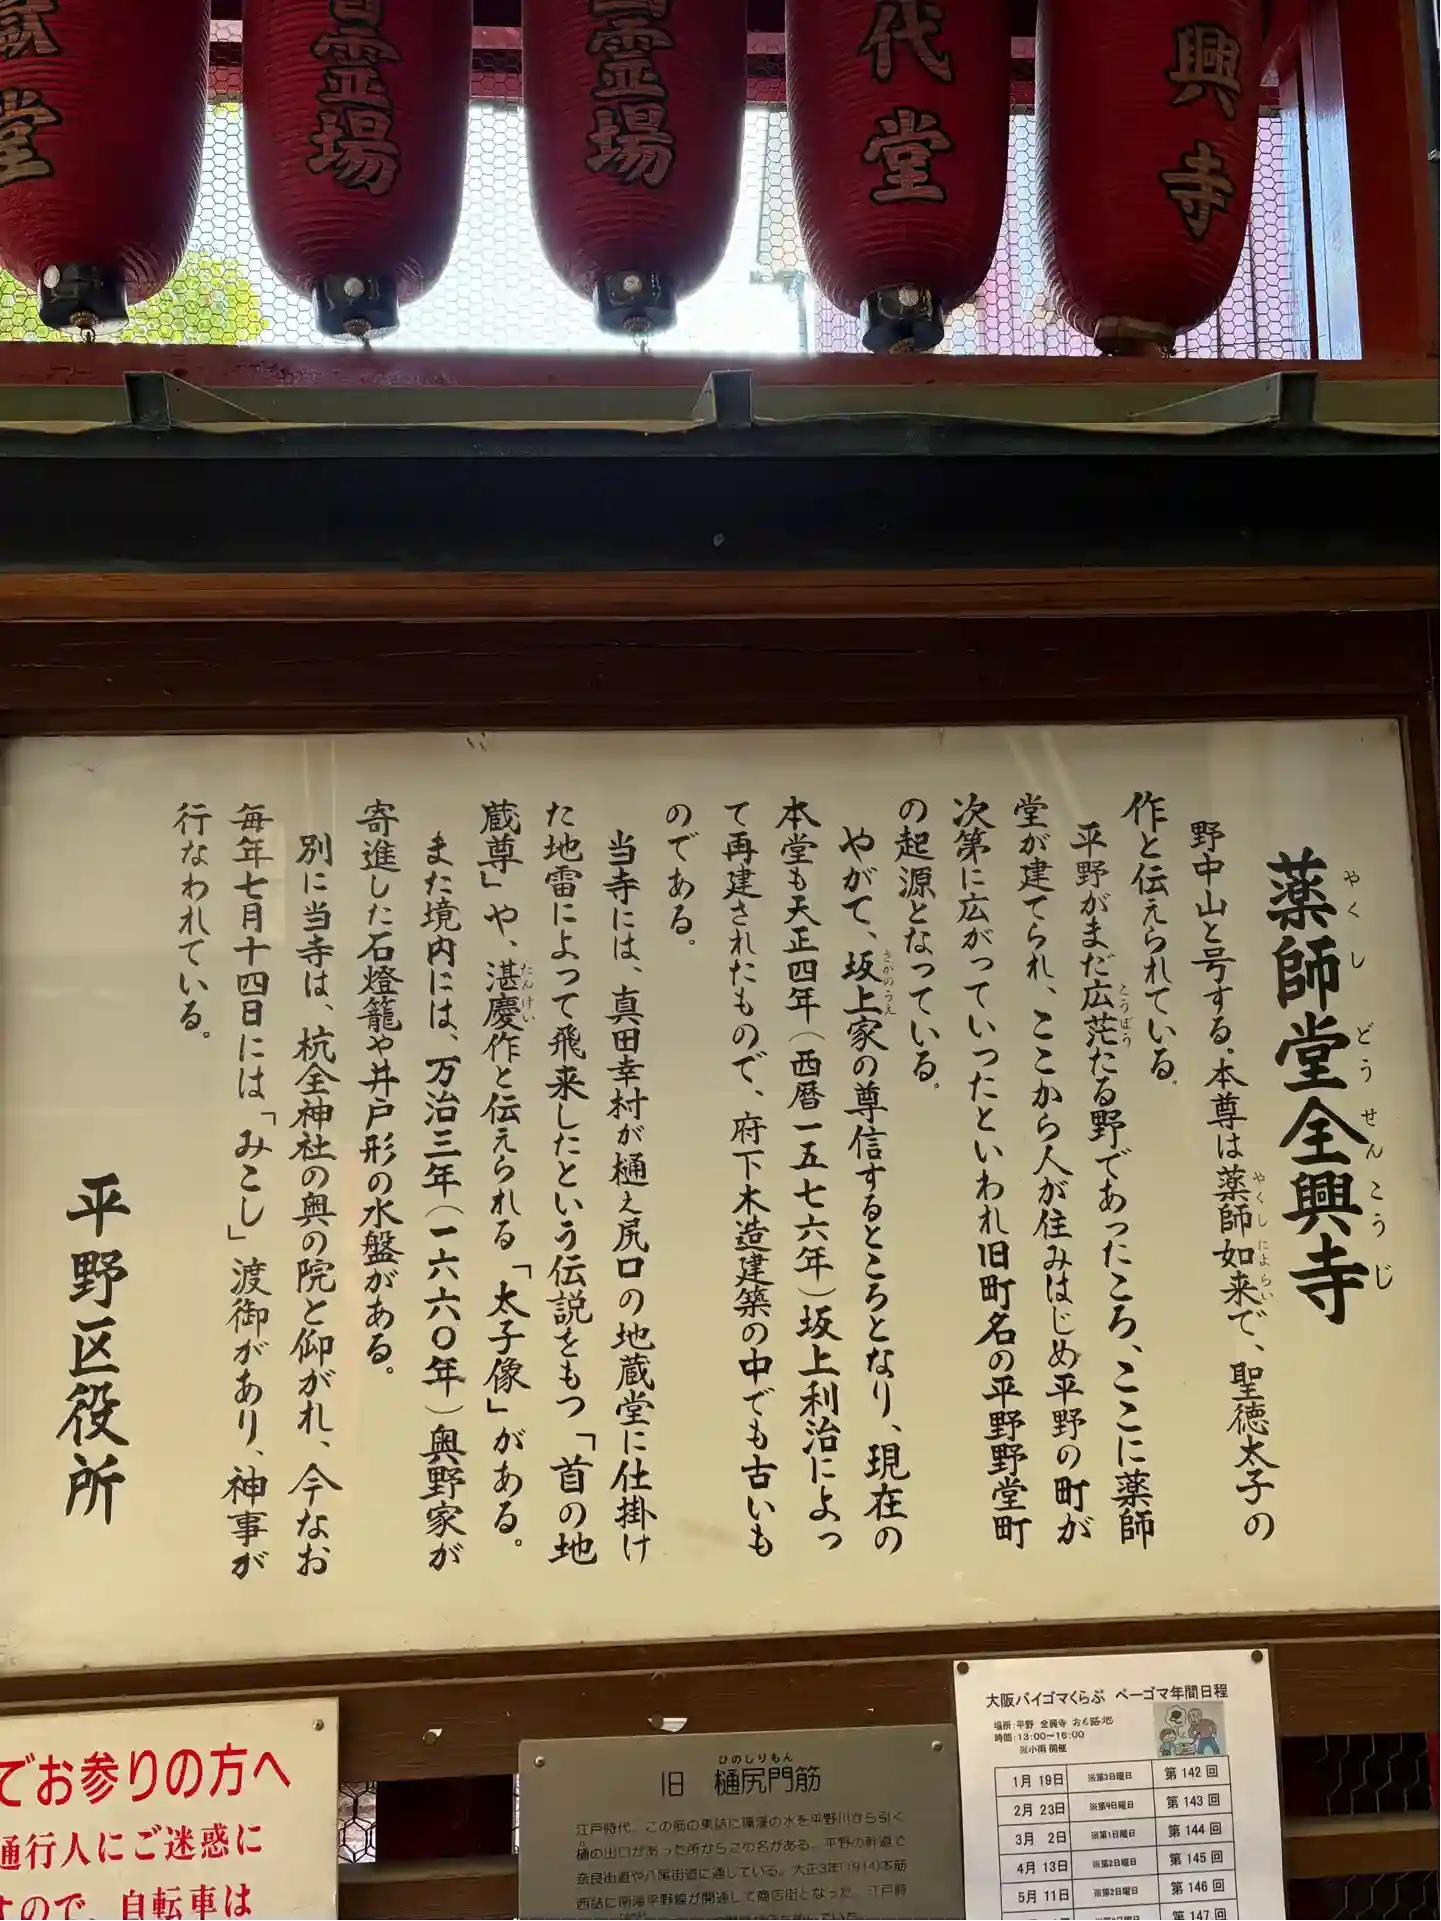 興寺
代堂
霊場
霊場
堂
薬師堂全興寺
やくしどうせんこうじ
野中山と号する。本尊は薬師如来で、聖徳太子の
やくしによらい
作と伝えられている。
平野がまだ広茫たる野であったころ、ここに薬師
こうぼう
堂が建てられ、ここから人が住みはじめ平野の町が
次第に広がっていったといわれ旧町名の平野野堂町
の起源となっている。
やがて、坂上家の尊信するところとなり、現在の
さかのうえ
本堂も天正四年(西暦一五七六年)坂上利治によっ
て再建されたもので、府下木造建築の中でも古いも
のである。
当寺には、真田幸村が樋え尻口の地蔵堂に仕掛け
た地雷によって飛来したという伝説をもつ「首の地
蔵尊」や、湛慶作と伝えられる「太子像」がある。
たんけい
また境内には、万治三年(一六六〇年)奥野家が
寄進した石燈籠や井戸形の水盤がある。
別に当寺は、杭全神社の奥の院と仰がれ、今なお
毎年七月十四日には「みこし」渡御があり、神事が
行なわれている。
平野区役所
でお参りの方へ
通行人にご迷惑に
すので、自転車は
ひのしりもん
旧 樋尻門筋
江戸時代、この筋の東詰に環濠の水を平野川から引く
樋の出口があった所からこの名がある。平野の幹道で
奈良街道や八尾街道に通じている。大正3年(1914)本筋
西詰に南海平野線が開通して商店街となった。江戸時
大阪バイゴマくらぶ ベーゴマ年間日程
場所:平野 全興寺 おも路地
時間:13:00~16:00
※小雨 開催
1月 19日 ※第3日曜日 第 142 回
2月 23日 ※第4日曜日 第 143 回
3月 2日 ※第1日曜日 第 144 回
4月 13日 ※第2日曜日 第 145 回
5月 11日 ※第2日曜日 第 146 回
第 147 回